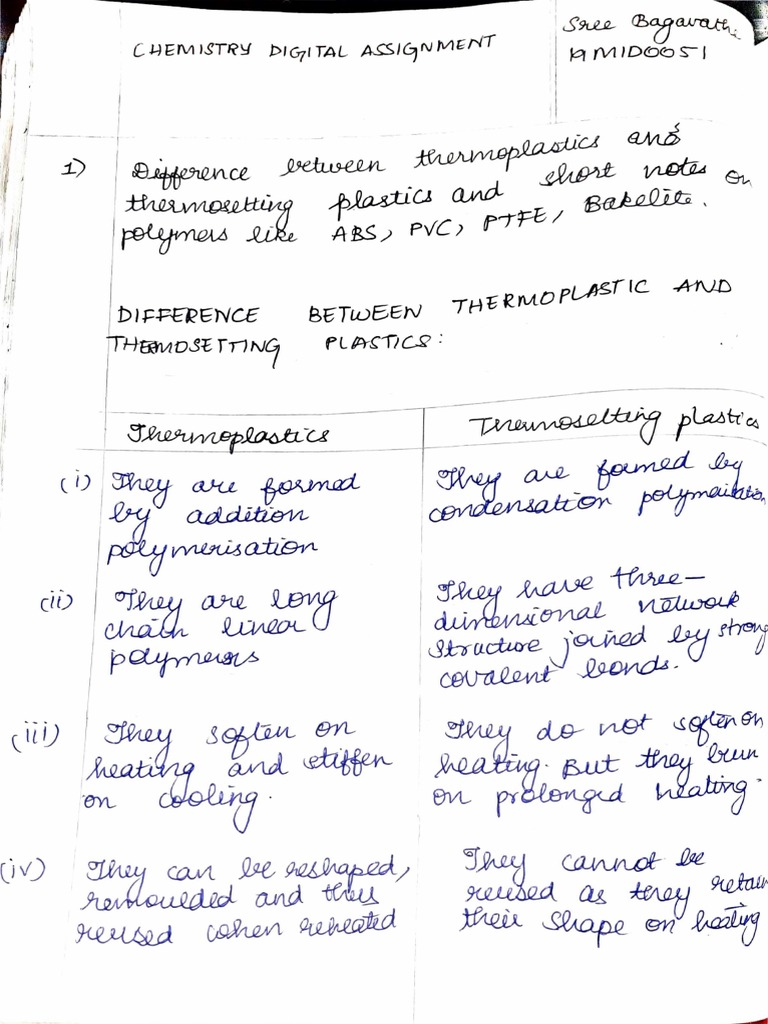 CHEMISTRY DIGITAL ASSIGNMENT
Sree Bagavathi
19MID0051
1) Difference between thermoplastics and
thermosetting plastics and short notes on
polymers like ABS, PVC, PTFE, Bakelite.
DIFFERENCE BETWEEN THERMOPLASTIC AND
THEMOSETTING PLASTICS:
Thermoplastics
Thermosetting plastics
(i) They are formed
by addition
polymerisation
They are formed by
condensation polymerisation
(ii) They are long
chain linear
polymers
They have three-
dimensional network
structure joined by strong
covalent bonds.
(iii) They soften on
heating and stiffen
on cooling.
They do not soften on
heating. But they brun
on prolonged heating.
(iv) They can be reshaped,
remoulded and thus
reused when reheated
They cannot be
reused as they retain
their shape on heating